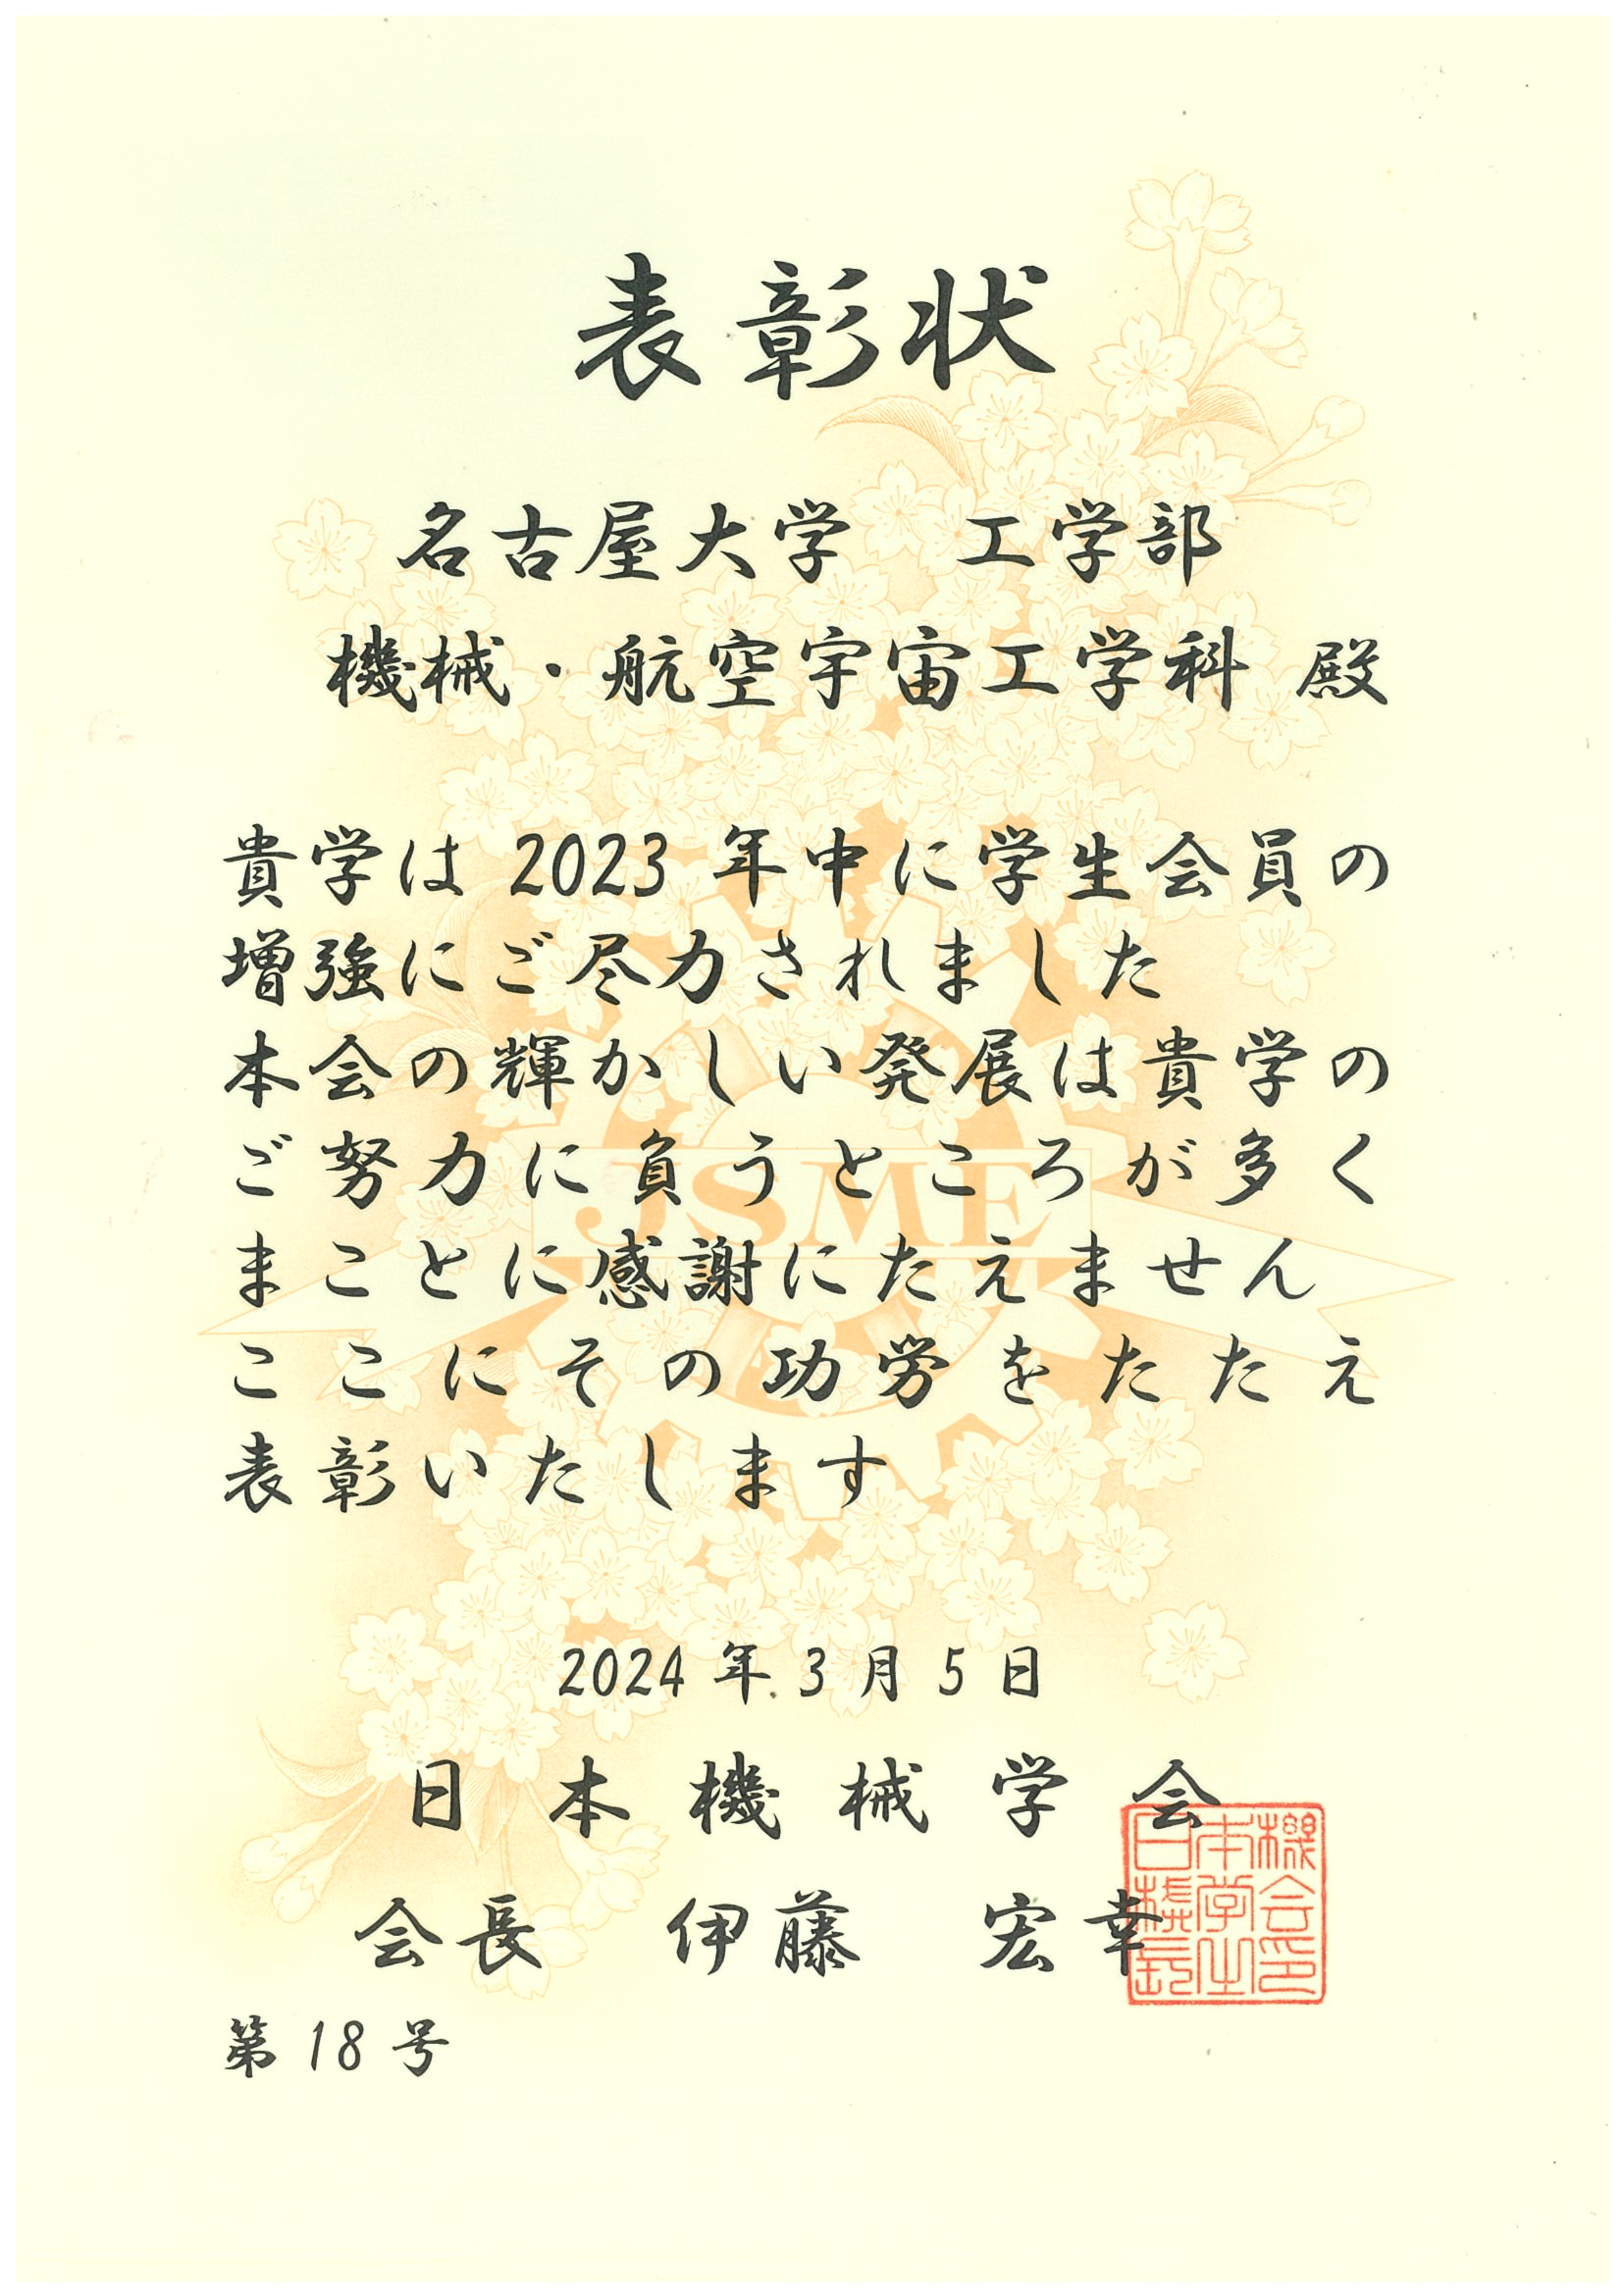 表彰状
名古屋大学 工学部
機械・航空宇宙工学科 殿
貴学は 2023 年中に学生会員の
増強にご尽力されました
本会の輝かしい発展は貴学の
ご努力に負うところが多く
まことに感謝にたえません
ここにその功労をたたえ
表彰いたします
JSME
2024 年 3 月 5 日
日本機械学会
会長 伊藤 宏幸
日本機
械学会
長之印
第 18 号